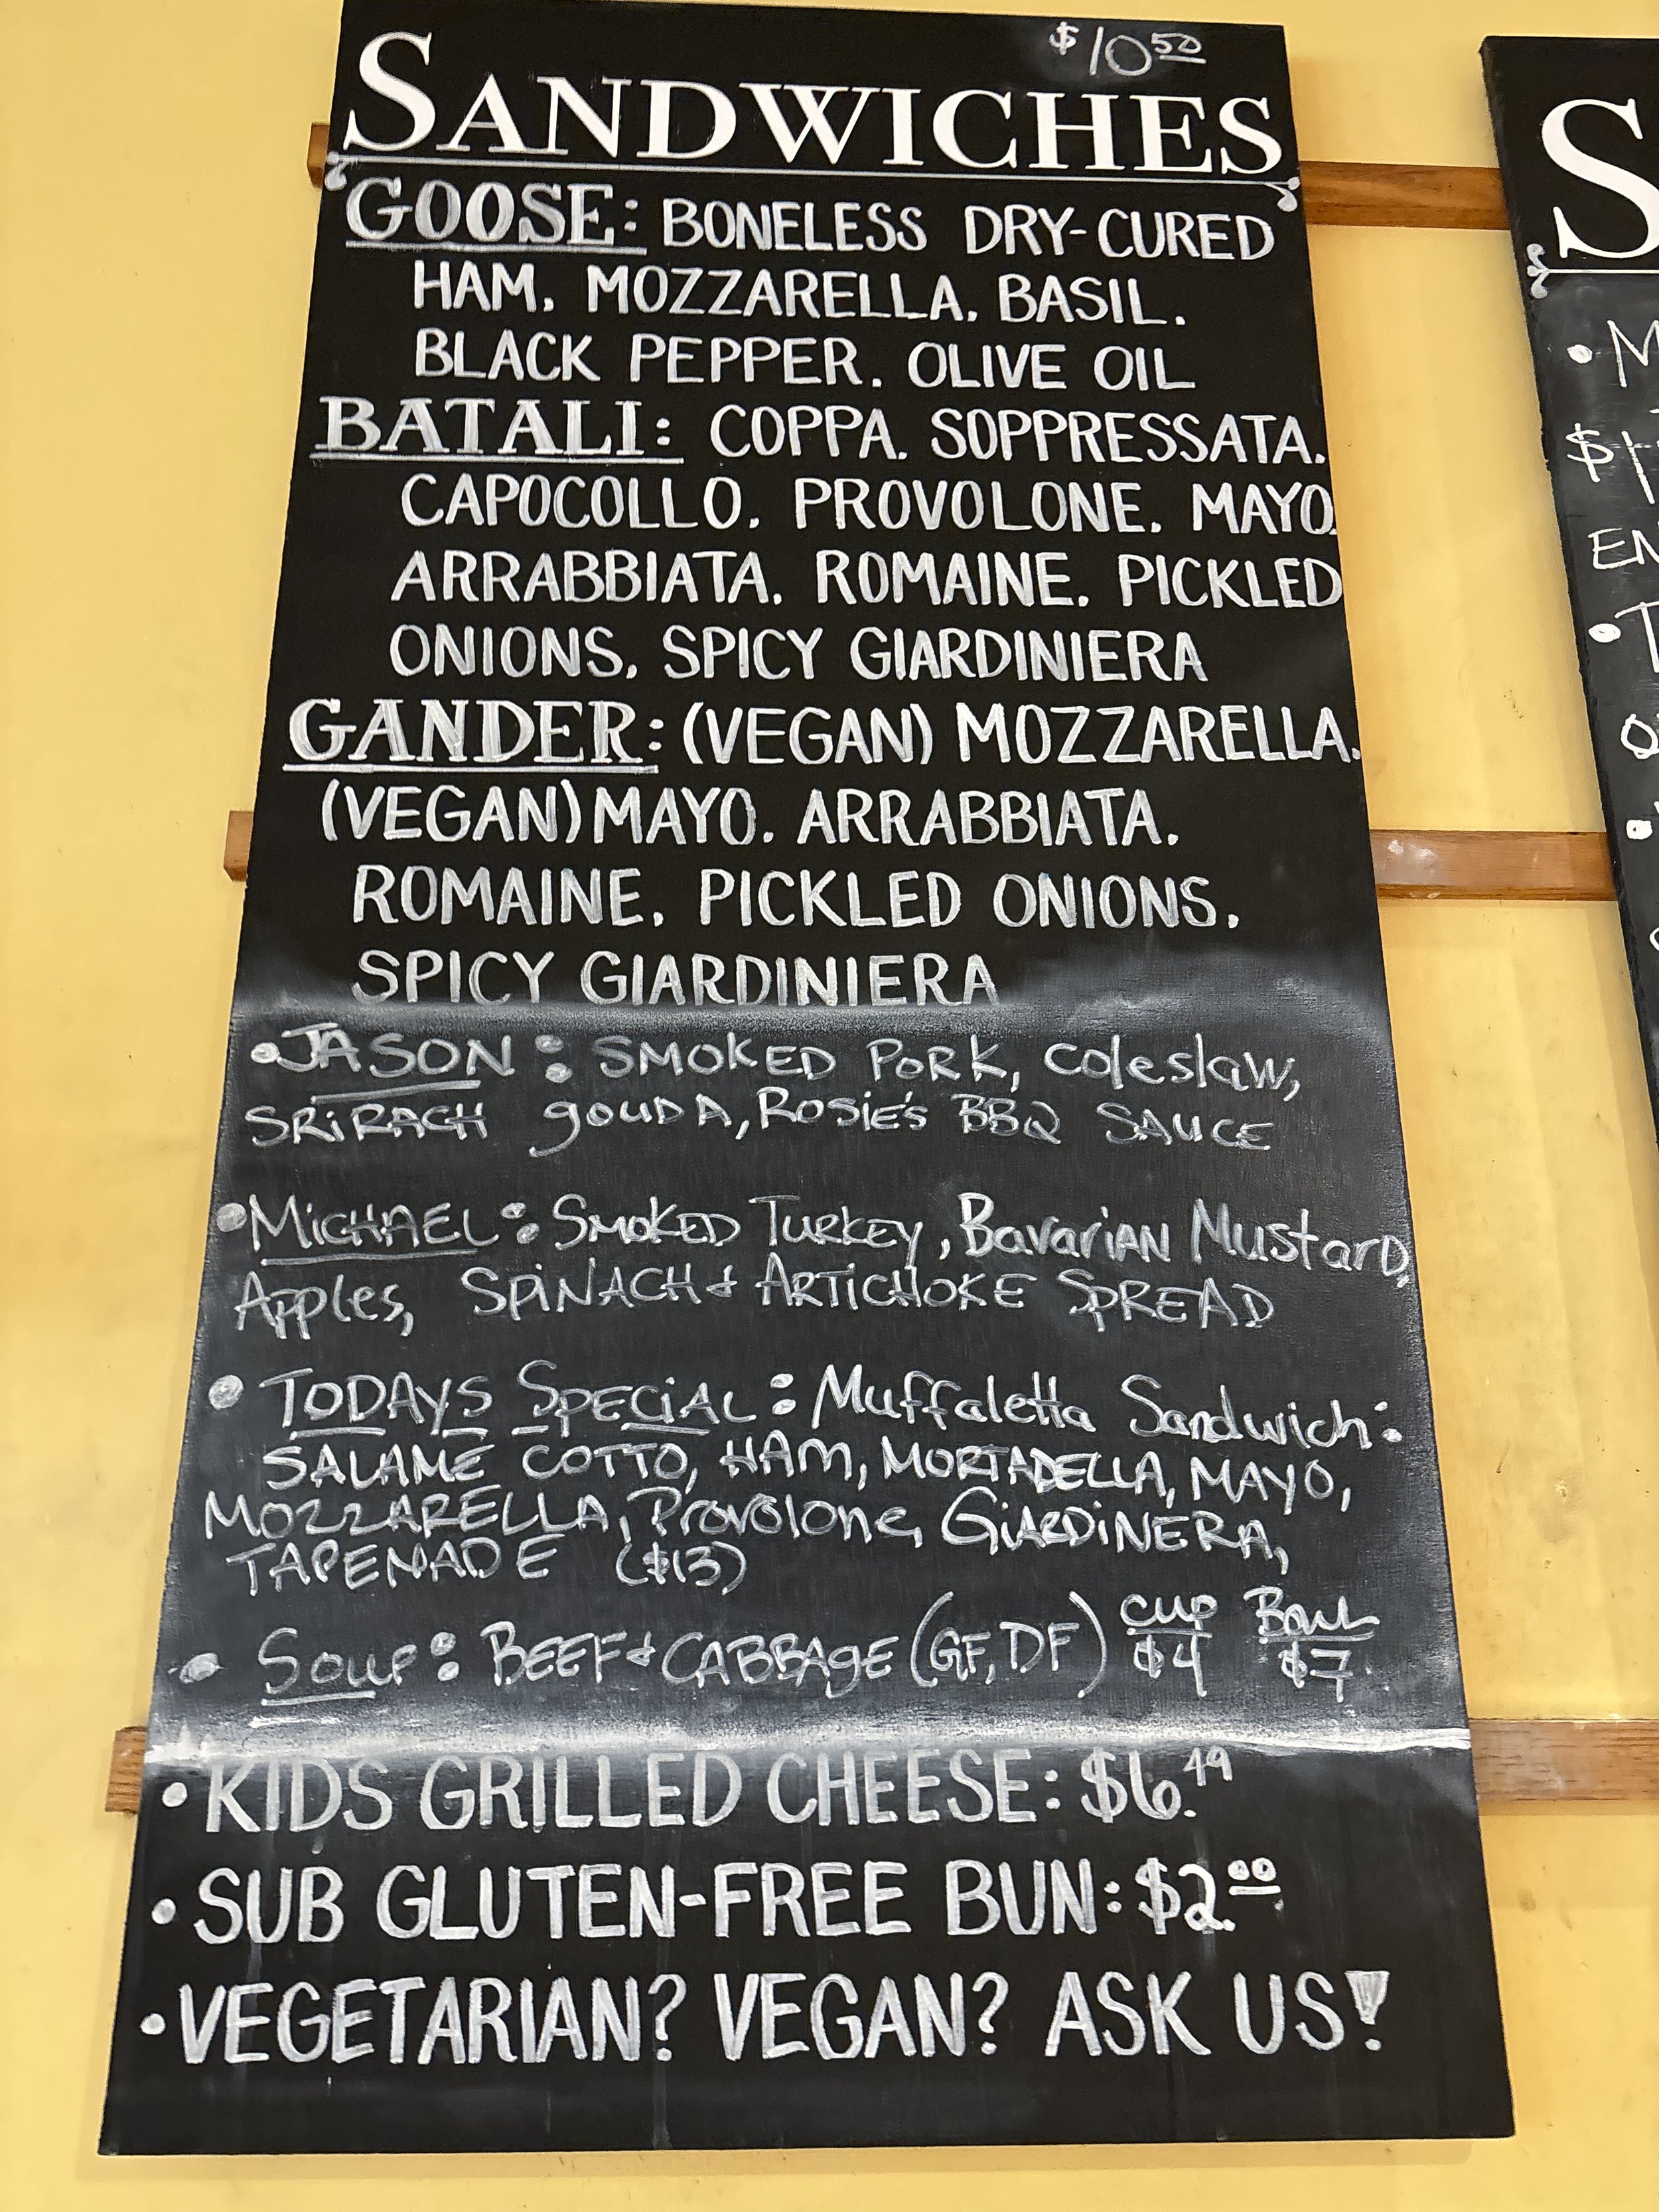 $10.50
SANDWICHES
GOOSE: BONELESS DRY-CURED
HAM. MOZZARELLA. BASIL.
BLACK PEPPER. OLIVE OIL
BATALI: COPPA. SOPPRESSATA.
CAPOCOLLO. PROVOLONE. MAYO.
ARRABBIATA. ROMAINE. PICKLED
ONIONS. SPICY GIARDINIERA
GANDER: (VEGAN) MOZZARELLA.
(VEGAN) MAYO. ARRABBIATA.
ROMAINE. PICKLED ONIONS.
SPICY GIARDINIERA
• JASON: SMOKED PORK, Coleslaw,
SRiRACH gouDA, Rosie's BBQ SAUCE
• MiCHAEL: SMOKED TURKEY, BavariAN MustarD,
Apples, SPiNACH & ARTiCHOKE SPREAD
• TODAYS SPECiAL: Muffaletta Sandwich:
SALAME COTTO, HAM, MORTADELLA, MAYO,
MOZZARELLA, Provolone, GiARDiNERA,
TAPENADE ($13)
• Soup: BEEF & CABBAgE (GF, DF) cup $4 Bowl $7
• KIDS GRILLED CHEESE: $6.49
• SUB GLUTEN-FREE BUN: $2.00
• VEGETARIAN? VEGAN? ASK US!
S
• M
$1
EN
• T